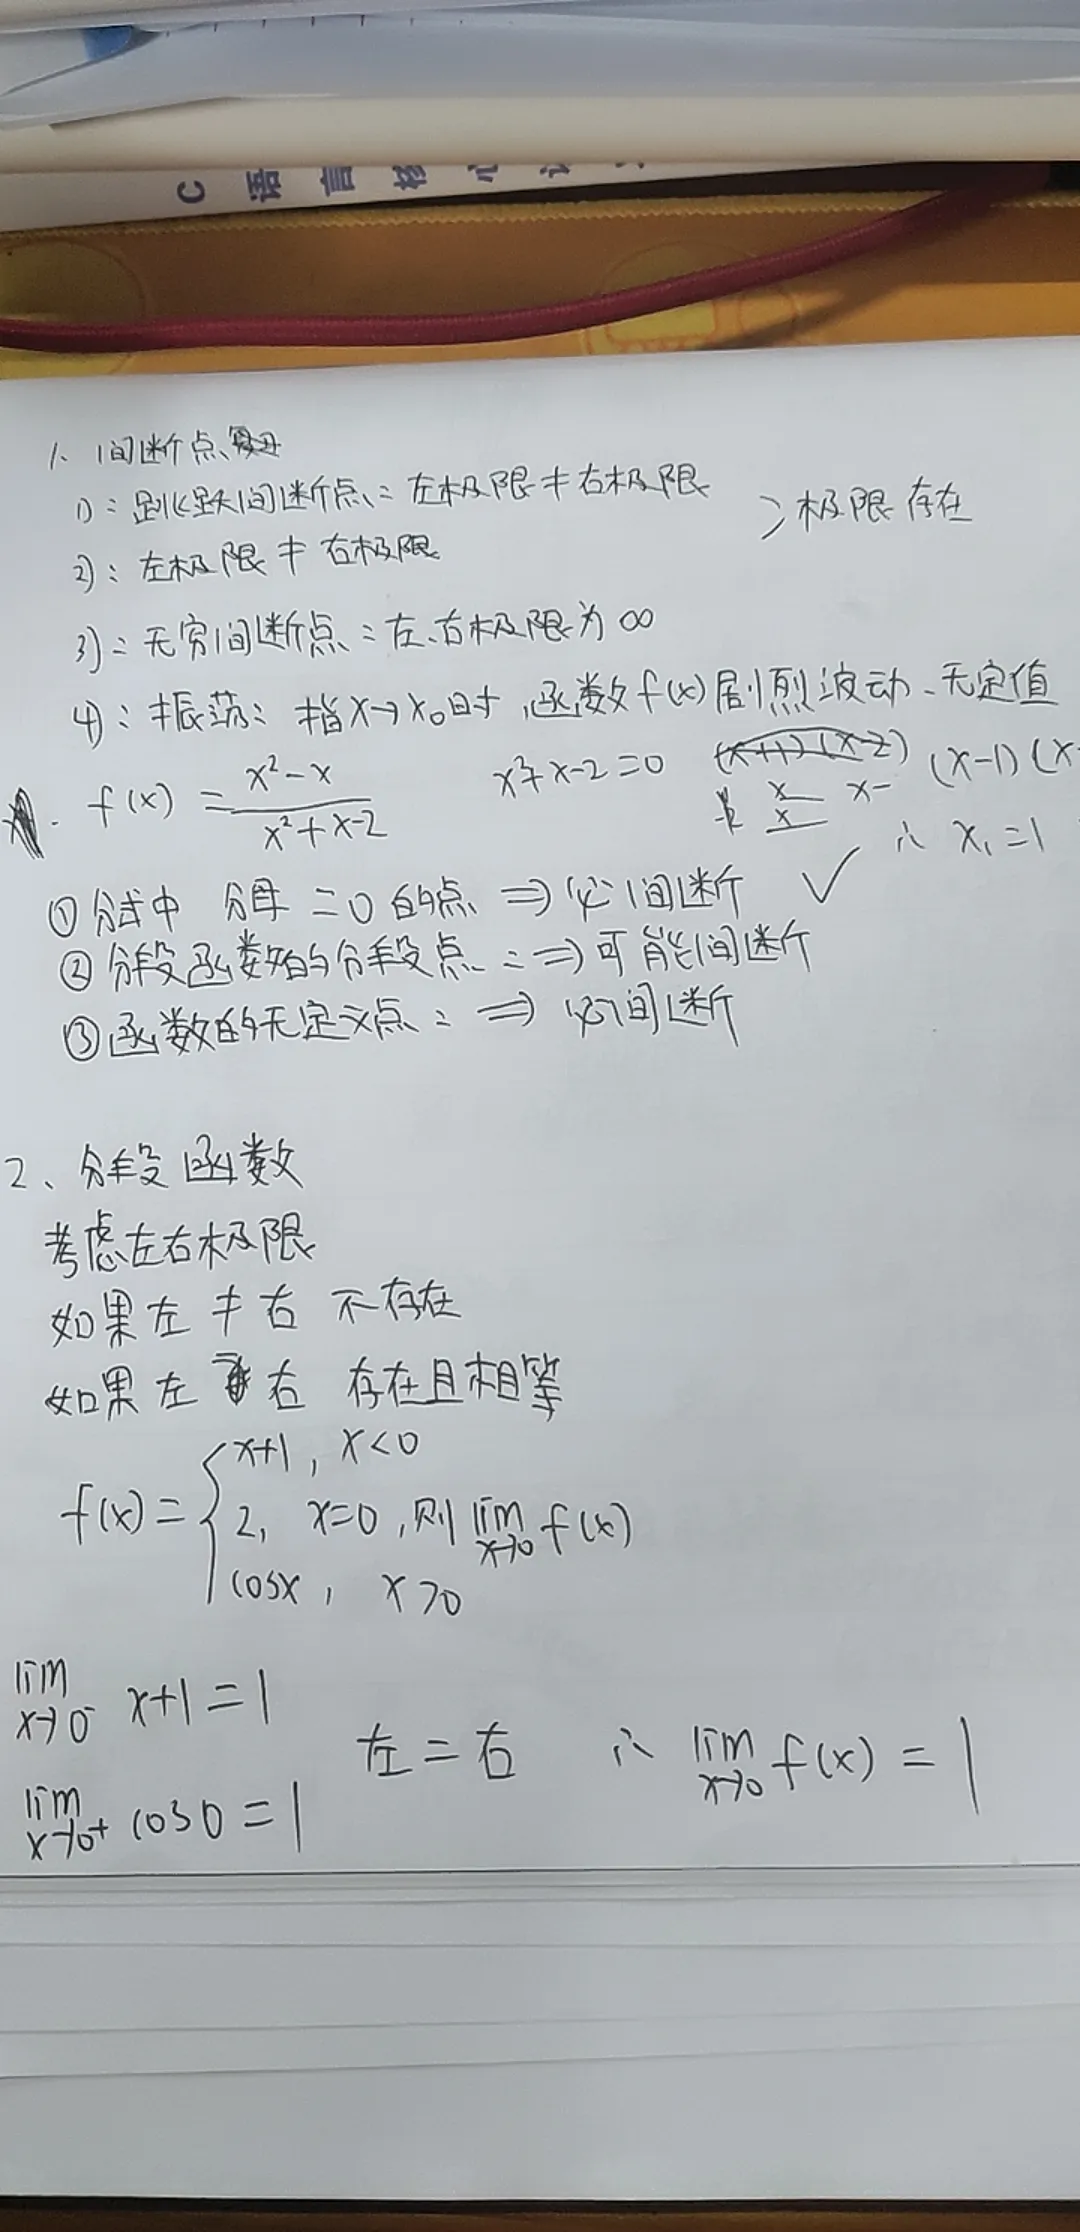 C语言核心
1、间断点、
1)：跳跃间断点：左极限≠右极限 >极限存在
2)：左极限≠右极限
3)：无穷间断点：左、右极限为∞
4)：振荡：指x→x₀时，函数f(x)剧烈波动、无定值
f(x) = (x²-x)/(x²+x-2) x²+x-2=0 (x+1)(x-2) (x-1)(x
x x-
x
∴ x₁=1
①分式中 分母=0的点 ⇒必间断 ✓
②分段函数的分段点：⇒可能间断
③函数的无定义点：⇒必间断
2、分段函数
考虑左右极限
如果左≠右 不存在
如果左 右 存在且相等
f(x)={ x+1, x<0
2, x=0 ,则 lim x→0 f(x)
cosx, x>0
lim x→0⁻ x+1=1
左=右 ∴ lim x→0 f(x) = 1
lim x→0⁺ cos0=1